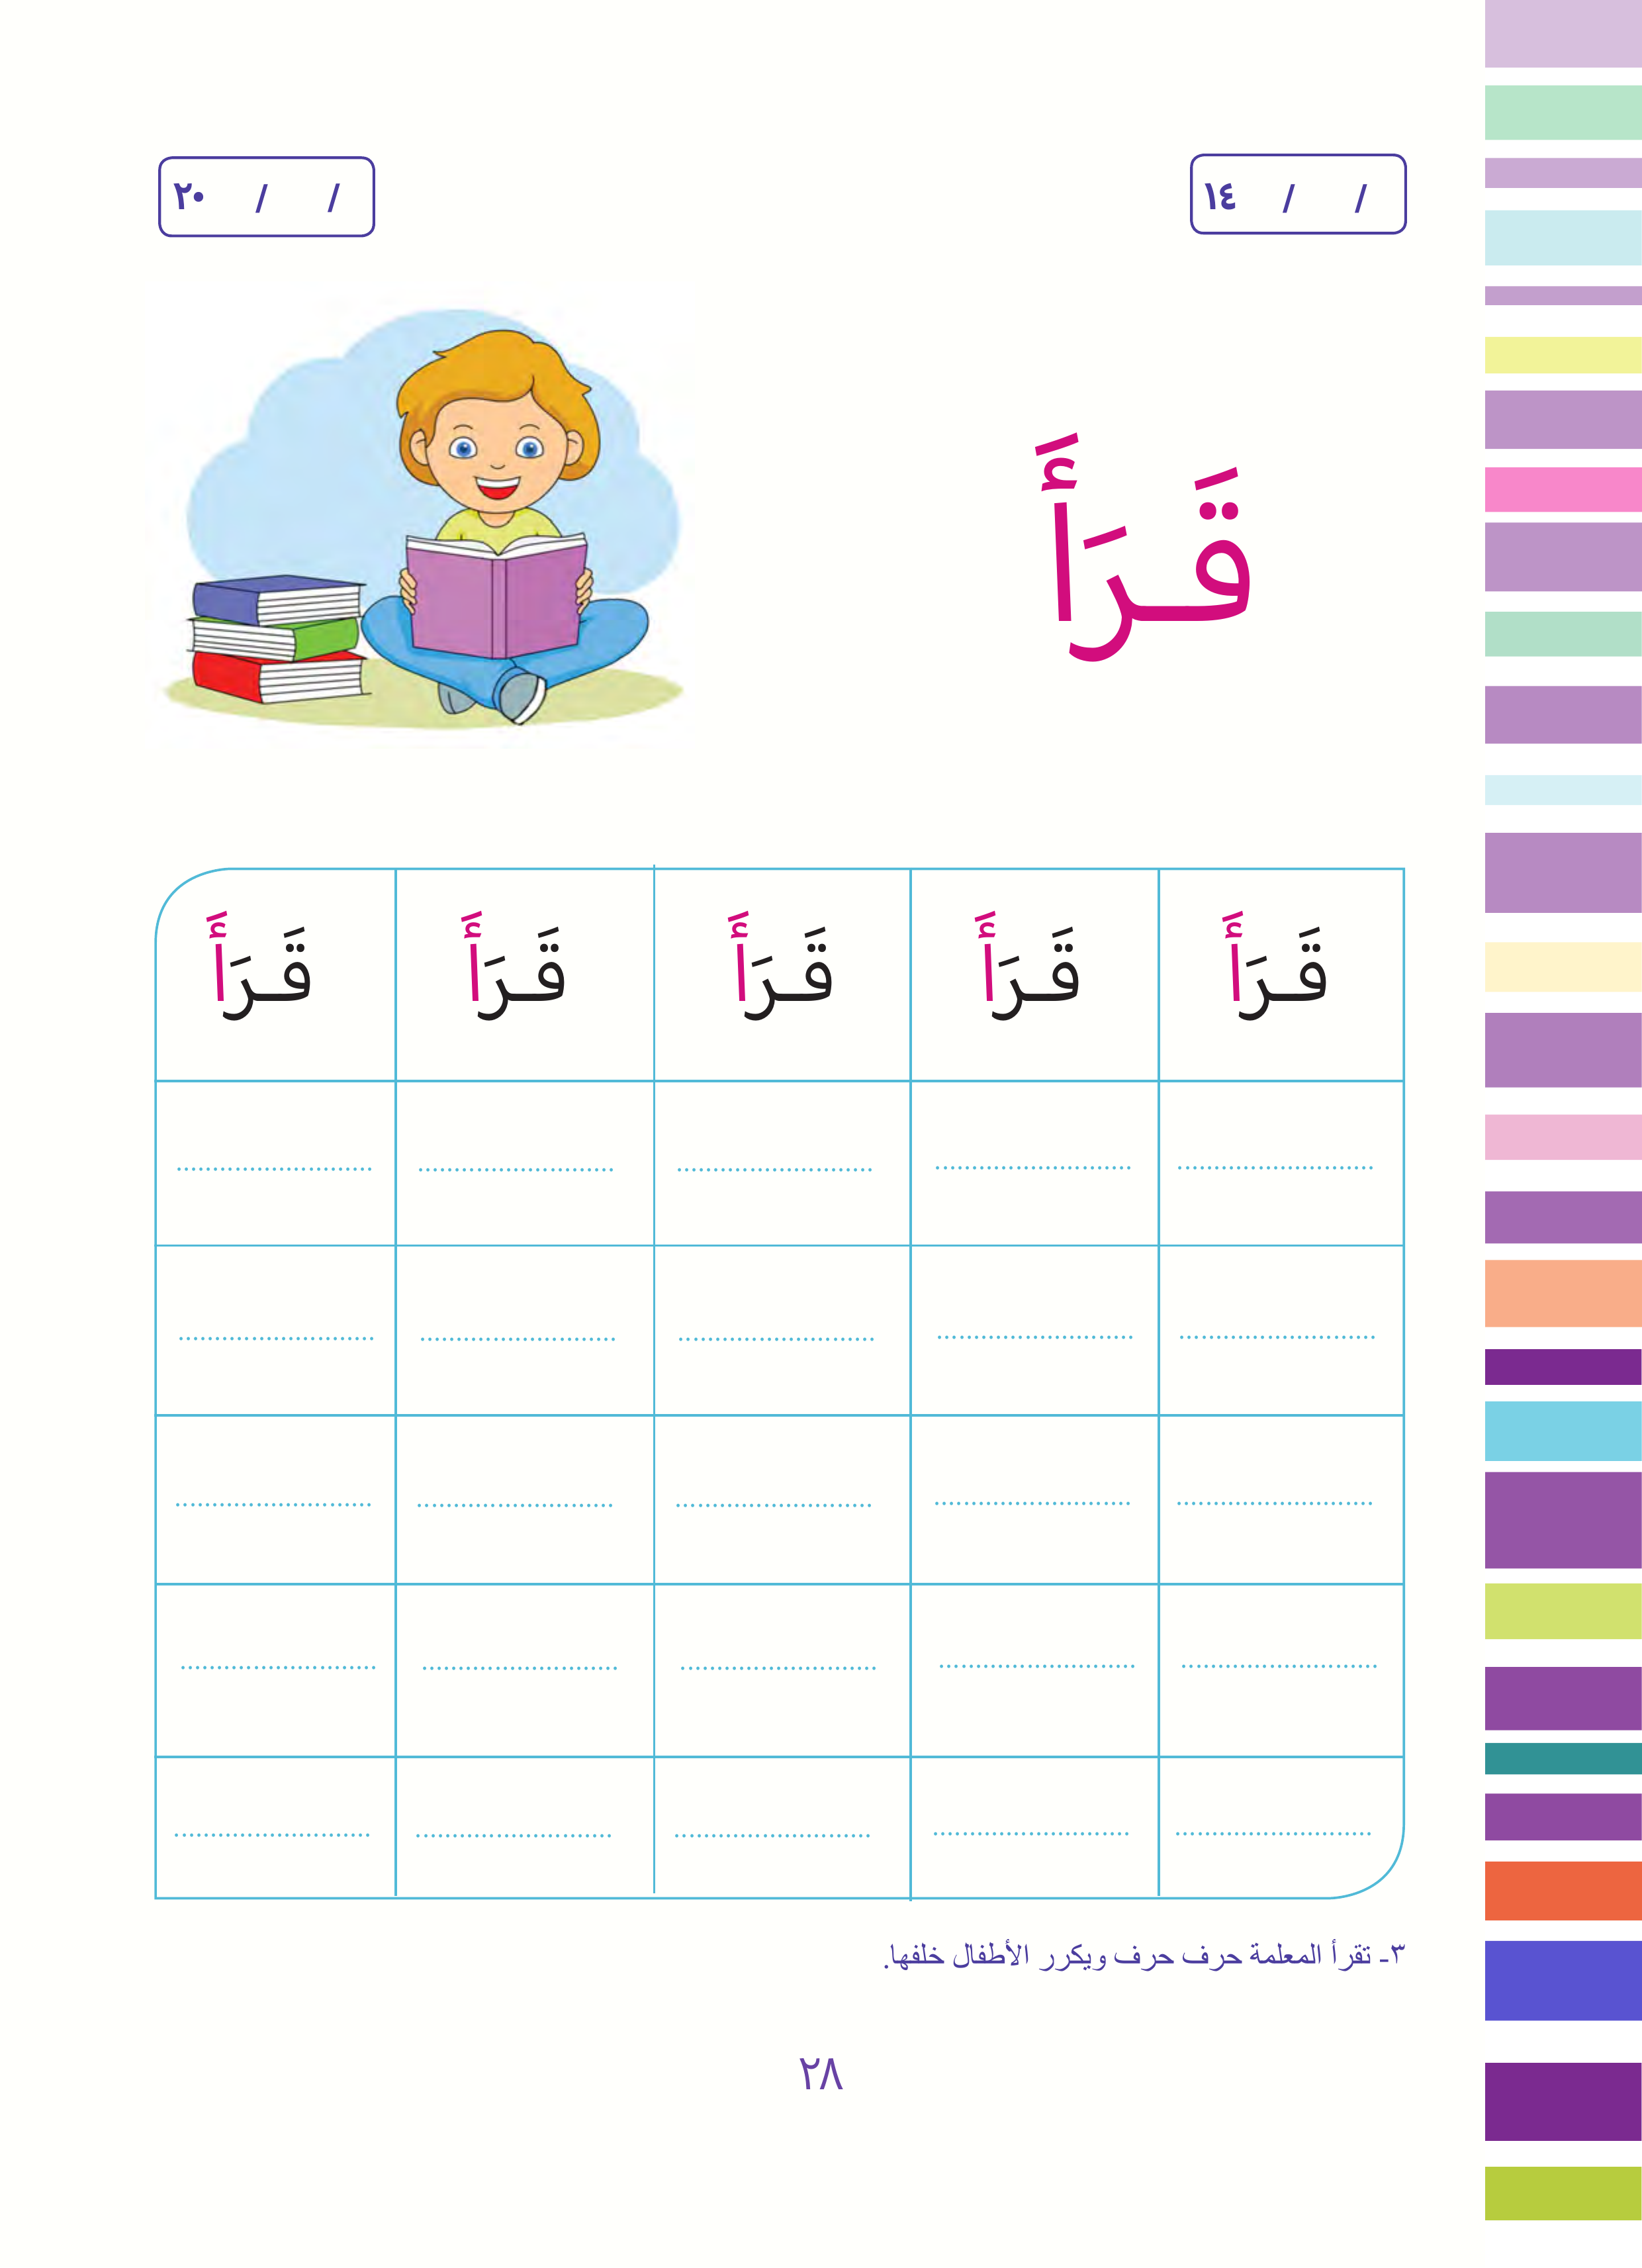 / / ١٤
/ / ٢٠
قَـرَأَ
قَـرَأَ قَـرَأَ قَـرَأَ قَـرَأَ قَـرَأَ
٣- تقرأ المعلمة حرف حرف ويكرر الأطفال خلفها.
٢٨